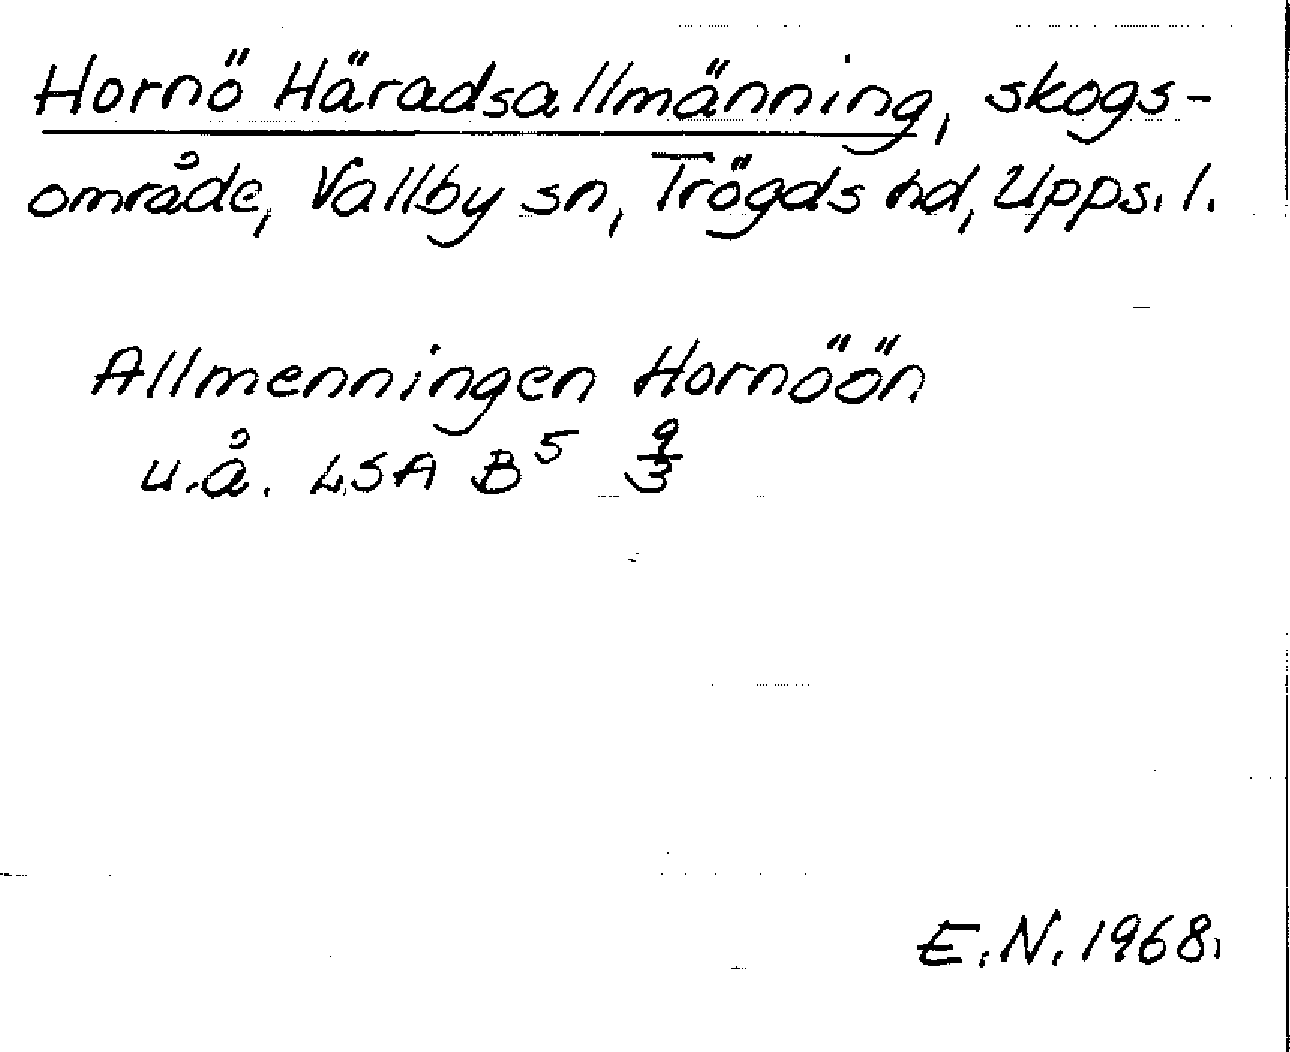 Hornö Häradsallmänning, skogs-
område, Vallby sn, Trögds hd, Upps. l.
Allmenningen Hornöön
u.å. LSA B⁵ 9/3
E.N. 1968.